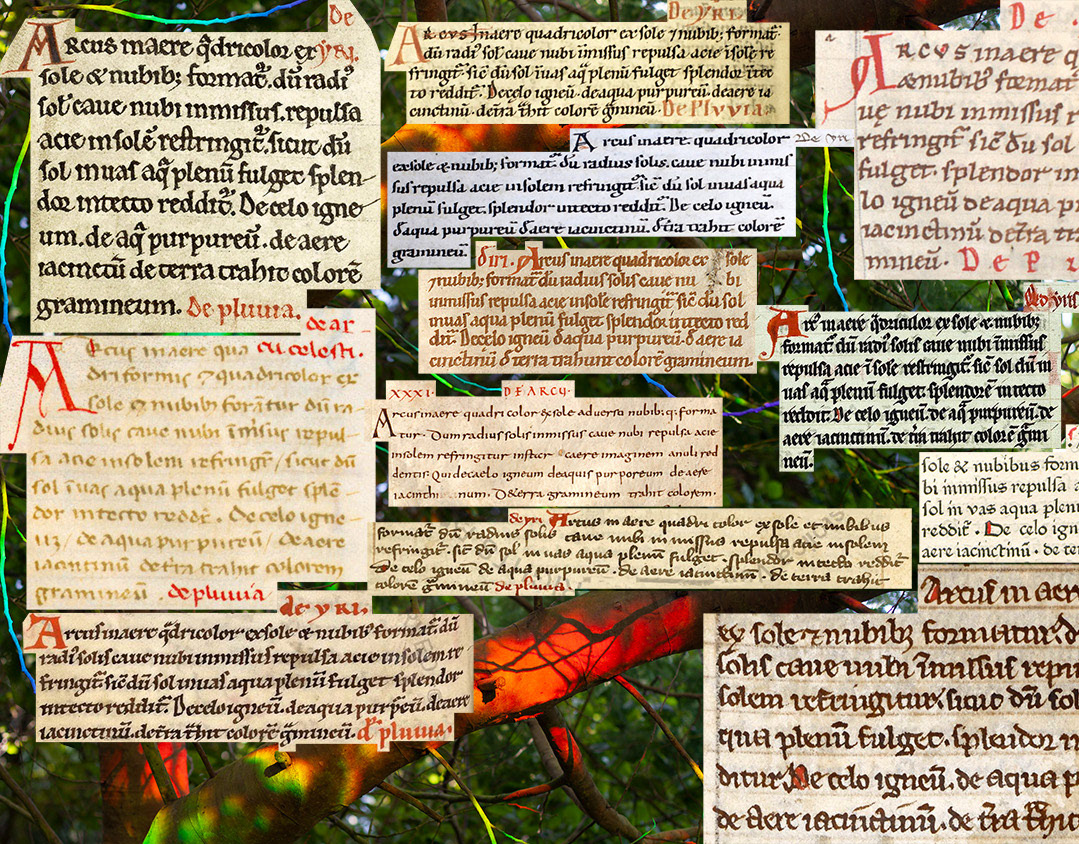 De
Arcus in aere q̄dricolor ex yRI.
sole & nubib; format᷑. dū radi᷒
sol᷒ caue nubi inmissus. repulsa
acie in solē restringit᷑. sicut dū
sol in uas aq̄ plenū fulget splen-
dor in tecto reddit᷑. De celo igne-
um. de aq̄ purpureū. de aere
iacinctū de terra trahit colorē
gramineum. De pluuia.
De yRI.
Arcus in aere quadricolor ex sole ⁊ nubib; format᷑
dū radi᷒ sol᷒ caue nubi īmissus repulsa acie ī solē re
fringit᷑ sic̄ dū sol ī uas aq̄ plenū fulget splendor ī tec
to reddit᷑. De celo igneū. de aqua purpureū. de aere ia
cinctinū. de t̄ra t̄hit colorē g̃mineū. De Pluuia
De
Arcus in aere q
& nubib᷒ format
ue nubi inmissus r
refringit᷑ sic̄ dū sol
fulget. splendor in
lo igneū de aqua p
iacinctinū de t̄ra tr
mineū. De P
Arcus in aere. quadricolor De yri
ex sole & nubib; format᷑. dū radius solis. caue nubi inmis
sus repulsa acie in solem refringit᷑ sic̄ dū sol in uas aqua
plenū fulget. splendor in tecto reddit᷑. De celo igneū.
d̄ aqua purpureū d̄ aere iacinctinū. d̄ t̄ra trahit colorē
gramineū.
d̄ iri. Arcus in aere quadricolor ex sole
⁊ nubib; format᷑ dū radius solis caue nu bi
inmissus repulsa acie in sole refringit᷑ sic̄ dū sol
in uas aqua plenū fulget splendor in tecto red
dit᷑. De celo igneū d̄ aqua purpureū d̄ aere ia
cinctinū d̄ terra trahunt colorē gramineum.
Arc᷒ in aere q̄dricolor ex sole & nubib;
format᷑ dū radi᷒ solis caue nubi īmissus
repulsa acie ī sole restringit᷑ sic̄ sol dū in
uas aq̄ plenū fulget splendorē in tecto
reddit. De celo igneū. de aq̄ purpureū. de
aere iacinctinū. de t̄ra trahit colorē g̃mi
neū.
de ar
Arcus in aere qua cu celesti.
driformis ⁊ quadricolor ex
sole & nubib; formāt᷑ur dū ra-
dius solis caue nubi īmissus repul-
sa acie in solem refringit᷑ / sicut dū
sol ī uas aqua plenū fulget splē-
dor in tecto reddit᷑. De celo igne-
ū / de aqua purpureū / de aere
iacinctinū de t̄ra trahit colorem
gramineū. de pluuia
XXXI. DE ARCU.
Arcus in aere quadri color ex sole aduersa nubib; q; forma
tur. Dum radius solis inmissus caue nubi repulsa acie
in solem refringitur instar caere imaginem anuli red
dentis. Qui de caelo igneum de aquis purporeum de aere
iacinthi num. De terra gramineum trahit colorem.
sole & nubibus form
bi inmissus repulsa a
sol in vas aqua plen
reddit᷑. De celo ign
aere iacinctinū. de te
de yri Arcus in aere quadri color ex sole et nubibus
format᷑ dū radius solis caue nubi in missus repulsa acie in solem
refringit᷑. sic̄ dū sol in uas aqua plenū fulget. splendor in tecto reddit᷑
De celo igneū de aqua purpureū. de aere iacinctinū. de terra trahit
colorē g̃mineū de pluuia.
de yRI.
Arcus in aere q̄dricolor ex sole & nubib᷒ format᷑ dū
radi᷒ solis caue nubi inmissus repulsa acie in solem re-
fringit᷑ sic̄ dū sol in uas aqua plenū fulget splendor
in tecto reddit᷑. De celo igneū. de aqua purpeū. de aere
iacinctinū. de t̄ra t̄hit colorē g̃mineū. de pluuia.
Arcus in aere
ex sole ⁊ nubib; formatur. d
solis caue nubi īmissus repu
solem refringitur. sicut dū sol
qua plenū fulget. splendor in
ditur De celo igneū. de aqua p
de aere iacinctinū. de t̄ra t̄hit